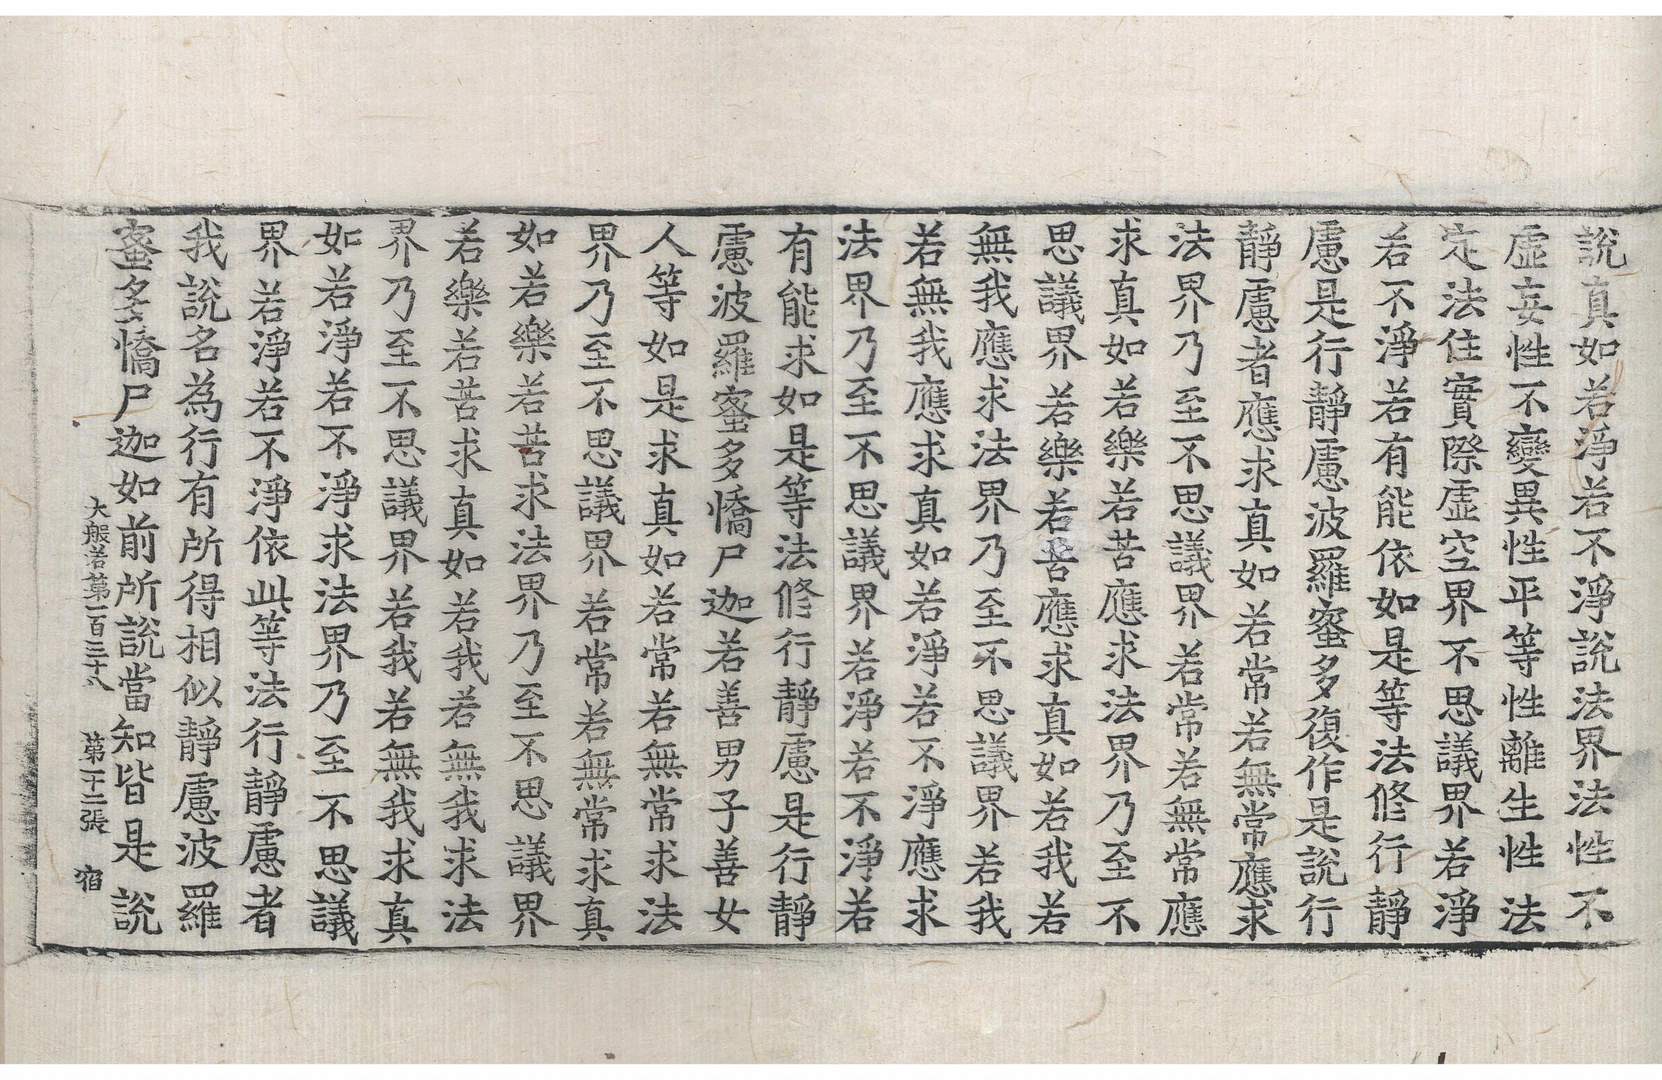 說真如若淨若不淨說法界法性不
虛妄性不變異性平等性離生性法
定法住實際虛空界不思議界若淨
若不淨若有能依如是等法修行靜
慮是行靜慮波羅蜜多復作是說行
靜慮者應求真如若常若無常應求
法界乃至不思議界若常若無常應
求真如若樂若苦應求法界乃至不
思議界若樂若苦應求真如若我若
無我應求法界乃至不思議界若我
若無我應求真如若淨若不淨應求
法界乃至不思議界若淨若不淨若
有能求如是等法修行靜慮是行靜
慮波羅蜜多憍尸迦若善男子善女
人等如是求真如若常若無常求法
界乃至不思議界若常若無常求真
如若樂若苦求法界乃至不思議界
若樂若苦求真如若我若無我求法
界乃至不思議界若我若無我求真
如若淨若不淨求法界乃至不思議
界若淨若不淨依此等法行靜慮者
我說名為行有所得相似靜慮波羅
蜜多憍尸迦如前所說當知皆是說
大般若第一百三十八 第二十二張 宿